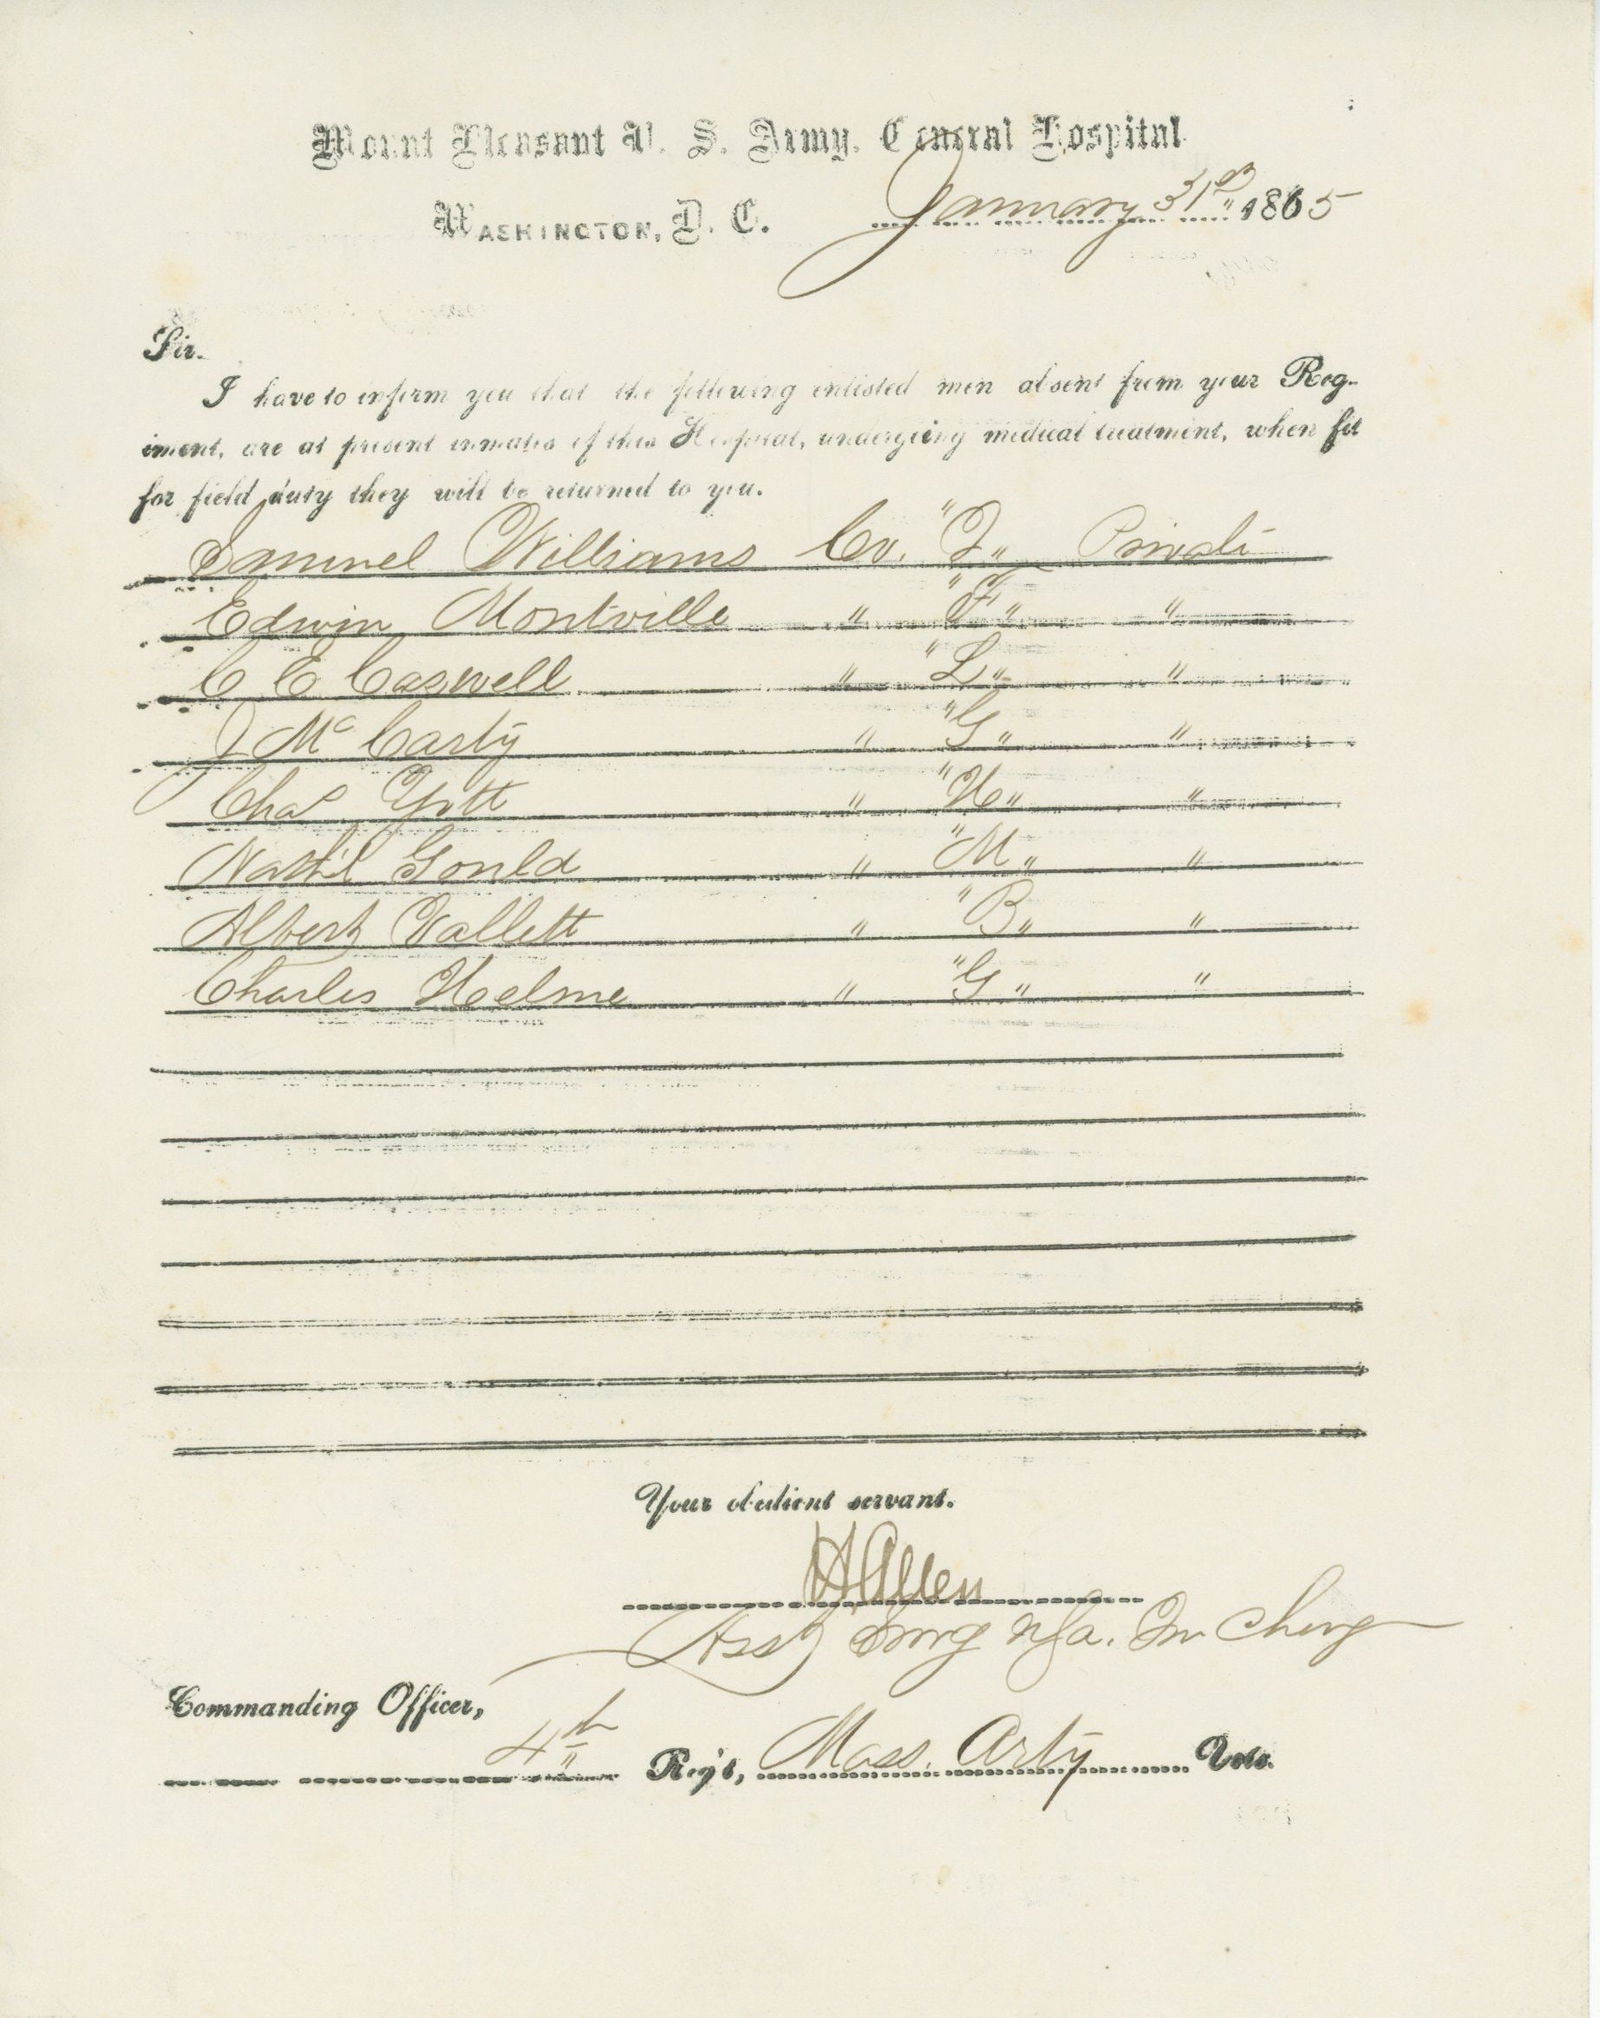 Mount Pleasant U. S. Army, General Hospital
Washington, D. C. January 31st 1865
Sir.
I have to inform you that the following enlisted men absent from your Reg-
iment, are at present inmates of this Hospital, undergoing medical treatment, when fit
for field duty they will be returned to you.
Samuel Williams Co. "I" Private
Edwin Montville " "F" "
C E Caswell " "L" "
J McCarty " "G" "
Chas Yott " "H" "
Nath'l Gould " "M" "
Albert Vallett " "B" "
Charles Helme " "G" "
Your obedient servant.
H Allen
Asst Surg U.S.a. In Charg
Commanding Officer,
4th Reg't, Mass. Arty Vols.